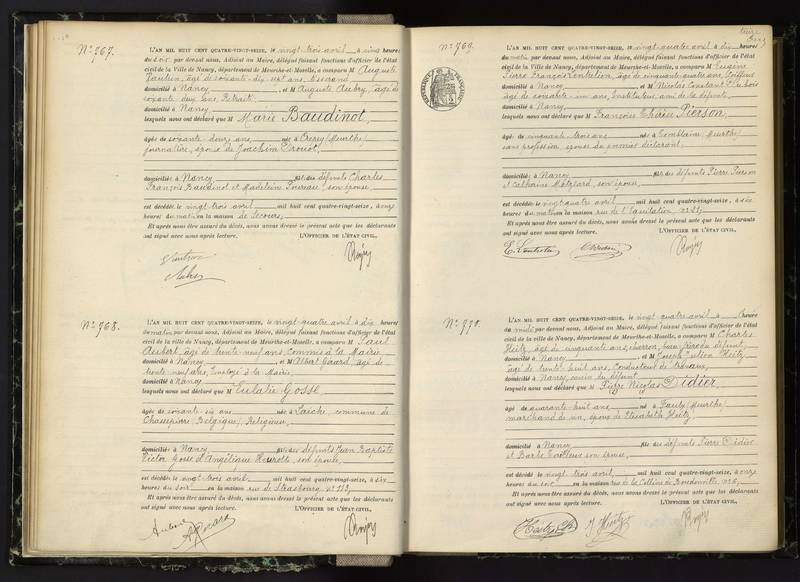 N° 767.
L'AN MIL HUIT CENT QUATRE-VINGT-SEIZE, le vingt trois avril à cinq heures
du soir par devant nous, Adjoint au Maire, délégué faisant fonctions d'officier de l'état
civil de la Ville de Nancy, département de Meurthe-et-Moselle, a comparu M Auguste
âgé de soixante-dix-sept ans, tisserand
domicilié à Nancy, et M Auguste Aubry, âgé de
soixante deux ans, Retraité
domicilié à Nancy
lesquels nous ont déclaré que M Marie Baudinot
âgée de soixante-douze ans née à (Meurthe)
journalière, épouse de Joachim Drouot,
domiciliée à Nancy fille des défunts Charles
François Baudinot et Madeleine son épouse,
est décédée le vingt trois avril mil huit cent quatre-vingt-seize, à onze
heures du matin en la maison de Secours,
Et après nous être assuré du décès, nous avons dressé le présent acte que les déclarants
ont signé avec nous après lecture. L'OFFICIER DE L'ÉTAT CIVIL,
N° 768.
L'AN MIL HUIT CENT QUATRE-VINGT-SEIZE, le vingt-quatre avril à dix heures
du matin par devant nous, Adjoint au Maire, délégué faisant fonctions d'officier de l'état
civil de la Ville de Nancy, département de Meurthe-et-Moselle, a comparu M Paul
Aubert, âgé de trente neuf ans, Commis à la Mairie
domicilié à Nancy, et M Albert Gérard, âgé de
trente neuf ans, Employé à la Mairie
domicilié à Nancy
lesquels nous ont déclaré que M Eulalie Gosse
âgée de soixante-six ans née à Laiche, commune de
Chassepierre (Belgique), Religieuse,
domiciliée à Nancy fille des défunts Jean Baptiste
Victor Gosse et Angélique son épouse,
est décédée le vingt trois avril mil huit cent quatre-vingt-seize, à dix
heures du soir en la maison rue de Strasbourg
Et après nous être assuré du décès, nous avons dressé le présent acte que les déclarants
ont signé avec nous après lecture. L'OFFICIER DE L'ÉTAT CIVIL,
Aubert
N° 769.
L'AN MIL HUIT CENT QUATRE-VINGT-SEIZE, le vingt-quatre avril à dix heures
du matin par devant nous, Adjoint au Maire, délégué faisant fonctions d'officier de l'état
civil de la Ville de Nancy, département de Meurthe-et-Moselle, a comparu M Eugène
Pierre François âgé de cinquante quatre ans, Coiffeur
domicilié à Nancy, et M Nicolas Constant Dubois
âgé de soixante-un ans, Instituteur, ami de la défunte
domicilié à Nancy
lesquels nous ont déclaré que M Françoise Thérèse Pierson,
âgée de cinquante-trois ans née à Tomblaine (Meurthe)
sans profession, épouse du premier déclarant,
domiciliée à Nancy fille des défunts Pierre Pierson
et Catherine son épouse,
est décédée le vingt-quatre avril mil huit cent quatre-vingt-seize, à six
heures du matin en la maison rue de l'Equitation,
Et après nous être assuré du décès, nous avons dressé le présent acte que les déclarants
ont signé avec nous après lecture. L'OFFICIER DE L'ÉTAT CIVIL,
N° 770.
L'AN MIL HUIT CENT QUATRE-VINGT-SEIZE, le vingt quatre avril à heure
du midi par devant nous, Adjoint au Maire, délégué faisant fonctions d'officier de l'état
civil de la Ville de Nancy, département de Meurthe-et-Moselle, a comparu M Charles
Heitz, âgé de cinquante ans, charron, beau-frère du défunt,
domicilié à Nancy, et M Joseph Julien Heitz,
âgé de trente huit ans, Conducteur de travaux,
domicilié à Nancy, cousin du défunt
lesquels nous ont déclaré que M Pierre Nicolas Didier,
âgé de quarante-huit ans né à (Meurthe)
marchand de vin, époux de Elisabeth Heitz,
domicilié à Nancy fils des défunts Pierre Didier
et Barbe son épouse,
est décédé le vingt trois avril mil huit cent quatre-vingt-seize, à onze
heures du soir en la maison rue de la Colline de Boudonville
Et après nous être assuré du décès, nous avons dressé le présent acte que les déclarants
ont signé avec nous après lecture. L'OFFICIER DE L'ÉTAT CIVIL,
Heitz
J Heitz